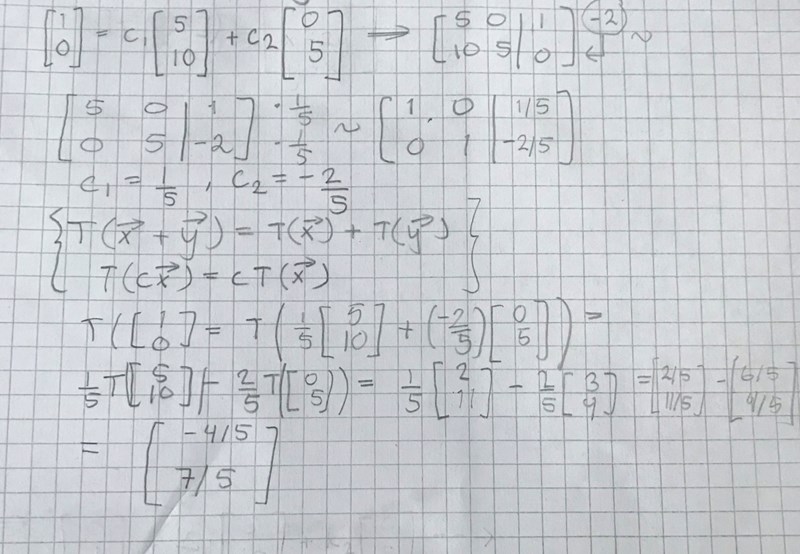 [1 0] = c₁ [5 10] + c₂ [0 5] → [5 0 | 1 10 5 | 0] (-2) ↲ ~
[5 0 | 1 0 5 | -2] · 1/5 · 1/5 ~ [1 0 | 1/5 0 1 | -2/5]
c₁ = 1/5 , c₂ = -2/5
{ T(x⃗ + y⃗) = T(x⃗) + T(y⃗) }
T(cx⃗) = cT(x⃗)
T([1 0] = T(1/5 [5 10] + (-2/5) [0 5]) =
1/5 T([5 10]) - 2/5 T([0 5]) = 1/5 [2 11] - 2/5 [3 ] = [2/5 11/5] - [6/5 /5]
= [-4/5 7/5]